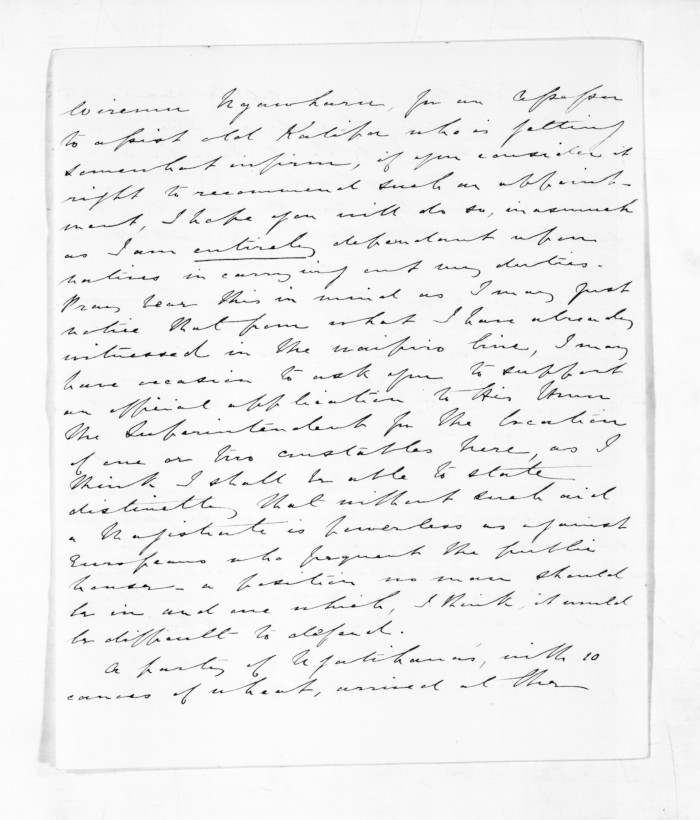 Wiremu Ngawharu, for an assessor
to assist old Katipa who is getting
somewhat infirm, if you consider it
right to recommend such an appoint-
ment, I hope you will do so, inasmuch
as I am entirely dependant upon
natives in carrying out my duties.
Pray bear this in mind as I may just
notice that from what I have already
witnessed in the waipiro line, I may
have occasion to ask you to support
an official application to His Honor
the Superintendent for the location
of one or two constables here, as I
think I shall be able to state
distinctly that without such aid
a Magistrate is powerless as against
Europeans who frequent the public
house - a position no man should
be in and one which, I think, it would
be difficult to defend.
A party of with 10
canoes of wheat, arrived at the